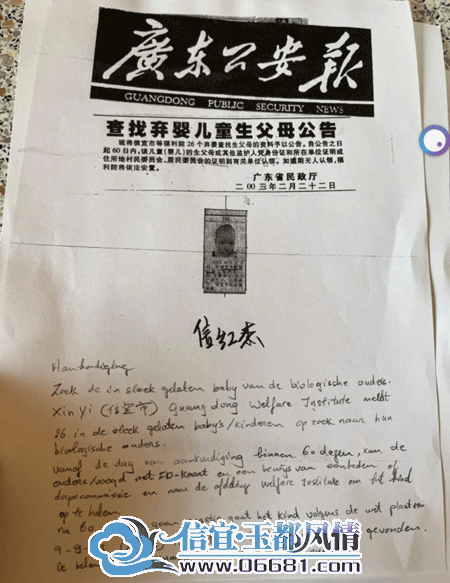 廣东公安报
GUANGDONG PUBLIC SECURITY NEWS
查找弃婴儿童生父母公告
现将信宜市等福利院26个弃婴查找生父母的资料予以公告。自公告之日
起60日内,该儿童(婴儿)的生父母或其他监护人凭身份证和所在单位证明或
住所地村民委员会、居民委员会的证明到有关单位认领。如逾期无人认领,福
利院将依法安置。
广东省民政厅
二00三年二月二十二日
信红杰
Aankondiging
Zoek de in steek gelaten baby van de biologische ouders.
Xin Yi (信宜市) Guang dong Welfare Institute meldt
26 in de steek gelaten baby's/kinderen op zoek naar hun
biologische ouders.
vanaf de dag van aankondiging binnen 60 dagen, kan de
ouders/voogd met ID-kaart en een bewijs van eenheden of
dorpscommissie en naar de afdeling Welfare Institute om het kind
op te halen.
na 60 gaat het kind volgens de wet plaatsen
9-9- gevonden.
De
信宜·玉都风情
www.06681.com